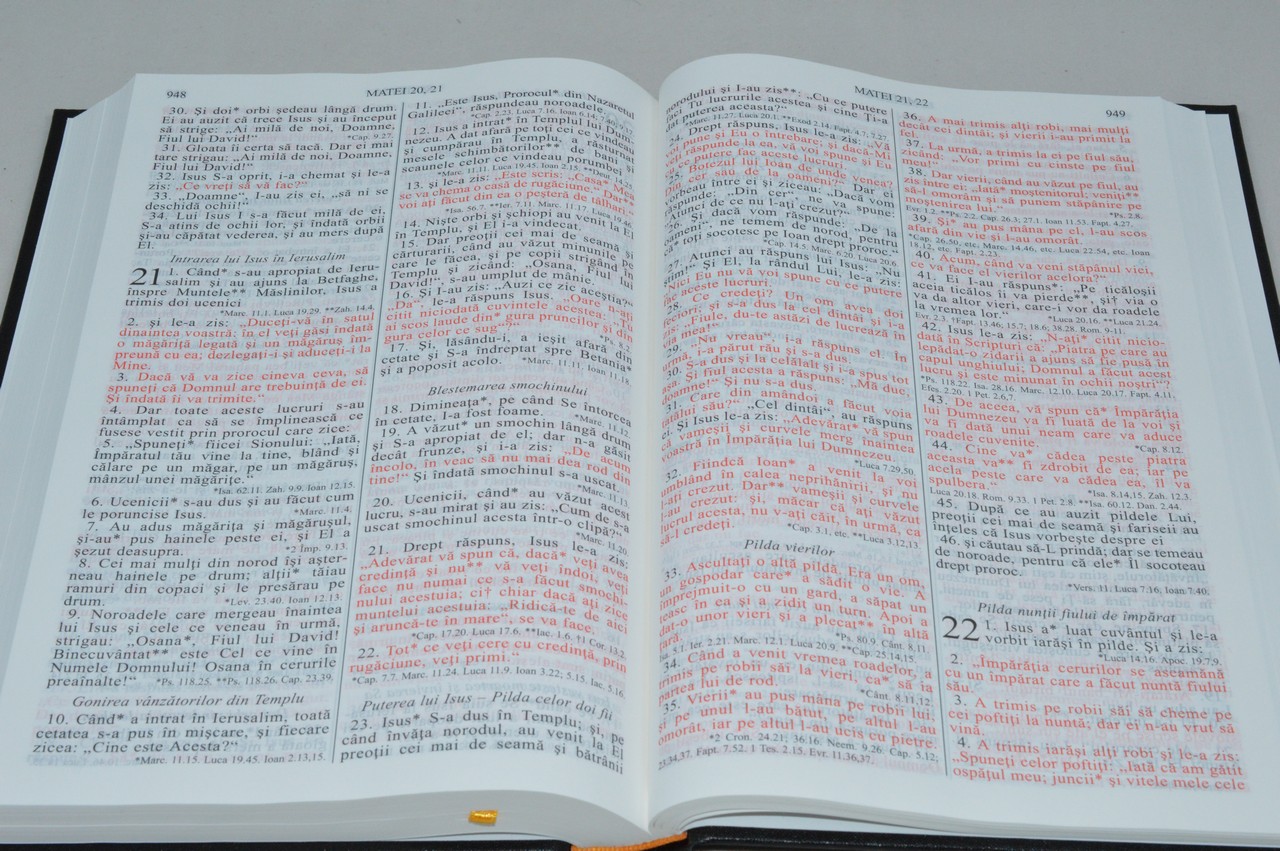 948
MATEI 20, 21
30. Şi doi* orbi şedeau lângă drum.
Ei au auzit că trece Isus şi au început
să strige: „Ai milă de noi, Doamne,
Fiul lui David!” *Cap. 9.27.
31. Gloata îi certa să tacă. Dar ei mai
tare strigau: „Ai milă de noi, Doamne,
Fiul lui David!”
32. Isus S-a oprit, i-a chemat şi le-a
zis: „Ce vreţi să vă fac?”
33. „Doamne”, I-au zis ei, „să ni se
deschidă ochii”.
34. Lui Isus I s-a făcut milă de ei,
S-a atins de ochii lor, şi îndată orbii
şi-au căpătat vederea, şi au mers după
El.
Intrarea lui Isus în Ierusalim
21 1. Când* s-au apropiat de Ieru-
salim şi au ajuns la Betfaghe,
înspre Muntele** Măslinilor, Isus a
trimis doi ucenici
*Marc. 11.1. Luca 19.29. **Zah. 14.4.
2. şi le-a zis: „Duceţi-vă în satul
dinaintea voastră: în el veţi găsi îndată
o măgăriţă legată şi un măgăruş îm-
preună cu ea; dezlegaţi-i şi aduceţi-i la
Mine.
3. Dacă vă va zice cineva ceva, să
spuneţi că Domnul are trebuinţă de ei.
Şi îndată îi va trimite.”
4. Dar toate aceste lucruri s-au
întâmplat ca să se împlinească ce
fusese vestit prin prorocul care zice:
5. „Spuneţi* fiicei Sionului: „Iată,
Împăratul tău vine la tine, blând şi
călare pe un măgar, pe un măgăruş,
mânzul unei măgăriţe.”
*Isa. 62.11. Zah. 9.9. Ioan 12.15.
6. Ucenicii* s-au dus şi au făcut cum
le poruncise Isus. *Marc. 11.4.
7. Au adus măgăriţa şi măgăruşul,
şi-au* pus hainele peste ei, şi El a
şezut deasupra. *2 Împ. 9.13.
8. Cei mai mulţi din norod îşi aşter-
neau hainele pe drum; alţii* tăiau
ramuri din copaci şi le presărau pe
drum. *Lev. 23.40. Ioan 12.13.
9. Noroadele care mergeau înaintea
lui Isus şi cele ce veneau în urmă,
strigau: „Osana*, Fiul lui David!
Binecuvântat** este Cel ce vine în
Numele Domnului! Osana în cerurile
preaînalte!” *Ps. 118.25. **Ps. 118.26. Cap. 23.39.
Gonirea vânzătorilor din Templu
10. Când* a intrat în Ierusalim, toată
cetatea s-a pus în mişcare, şi fiecare
zicea: „Cine este Acesta?”
*Marc. 11.15. Luca 19.45. Ioan 2.13,15.
11. „Este Isus, Prorocul* din Nazaretul
Galileei”, răspundeau noroadele.
*Cap. 2.23. Luca 7.16. Ioan 6.14; 7.40; 9.17.
12. Isus a intrat* în Templul lui Dum-
nezeu. A dat afară pe toţi cei ce vindeau
şi cumpărau în Templu, a răsturnat
mesele schimbătorilor** de bani şi
scaunele celor ce vindeau porumbei
*Marc. 11.11. Luca 19.45. Ioan 2.15. **Deut. 14.25.
13. şi le-a zis: „Este scris: „Casa* Mea
se va chema o casă de rugăciune.” Dar**
voi aţi făcut din ea o peşteră de tâlhari.”
*Isa. 56.7. **Ier. 7.11. Marc. 11.17. Luca 19.46.
14. Nişte orbi şi şchiopi au venit la El
în Templu, şi El i-a vindecat.
15. Dar preoţii cei mai de seamă şi
cărturarii, când au văzut minunile pe
care le făcea, şi pe copii strigând în
Templu şi zicând: „Osana, Fiul lui
David!”, s-au umplut de mânie.
16. Şi I-au zis: „Auzi ce zic aceştia?”
„Da”, le-a răspuns Isus. „Oare n-aţi
citit niciodată cuvintele acestea: „Tu
ai scos laude din* gura pruncilor şi din
gura celor ce sug”?” *Ps. 8.2.
17. Şi, lăsându-i, a ieşit afară din
cetate şi S-a îndreptat spre Betania*
şi a poposit acolo. *Marc. 11.11. Ioan 11.18.
Blestemarea smochinului
18. Dimineaţa*, pe când Se întorcea
în cetate, I-a fost foame. *Marc. 11.12.
19. A văzut* un smochin lângă drum
şi S-a apropiat de el; dar n-a găsit
decât frunze, şi i-a zis: „De acum
încolo, în veac să nu mai dea rod din
tine!” Şi îndată smochinul s-a uscat.
*Marc. 11.13.
20. Ucenicii, când* au văzut acest
lucru, s-au mirat şi au zis: „Cum de s-a
uscat smochinul acesta într-o clipă?”
*Marc. 11.20.
21. Drept răspuns, Isus le-a zis:
„Adevărat vă spun că, dacă* veţi avea
credinţă şi nu** vă veţi îndoi, veţi
face nu numai ce s-a făcut smochi-
nului acestuia; ci† chiar dacă aţi zice
muntelui acestuia: „Ridică-te de aici
şi aruncă-te în mare”, se va face.
*Cap. 17.20. Luca 17.6. **Iac. 1.6. †1 Cor. 13.2.
22. Tot* ce veţi cere cu credinţă, prin
rugăciune, veţi primi.”
*Cap. 7.7. Marc. 11.24. Luca 11.9. Ioan 3.22; 5.15. Iac. 5.16.
Puterea lui Isus – Pilda celor doi fii
23. Isus* S-a dus în Templu; şi, pe
când învăţa norodul, au venit la El
preoţii cei mai de seamă şi bătrânii
MATEI 21, 22
949
norodului şi I-au zis**: „Cu ce putere
faci Tu lucrurile acestea şi cine Ţi-a
dat puterea aceasta?”
*Marc. 11.27. Luca 20.1. **Exod 2.14. Fapt. 4.7; 7.27.
24. Drept răspuns, Isus le-a zis: „Vă
voi pune şi Eu o întrebare; şi dacă-Mi
veţi răspunde la ea, vă voi spune şi Eu
cu ce putere fac aceste lucruri.
25. Botezul lui Ioan de unde venea?
Din cer sau de la oameni?” Dar ei
vorbeau între ei şi ziceau: „Dacă vom
răspunde: „Din cer”, ne va spune:
„Atunci de ce nu l-aţi crezut?”
26. Şi dacă vom răspunde: „De la
oameni”, ne temem de norod, pentru
că* toţi socotesc pe Ioan drept proroc.”
*Cap. 14.5. Marc. 6.20. Luca 20.6.
27. Atunci au răspuns lui Isus: „Nu
ştim!” Şi El, la rândul Lui, le-a zis:
„Nici Eu nu vă voi spune cu ce putere
fac aceste lucruri.
28. Ce credeţi? Un om avea doi
feciori; şi s-a dus la cel dintâi şi i-a
zis: „Fiule, du-te astăzi de lucrează în
via mea!”
29. „Nu vreau”, i-a răspuns el. În
urmă, i-a părut rău şi s-a dus.
30. S-a dus şi la celălalt şi i-a spus tot
aşa. Şi fiul acesta a răspuns: „Mă duc,
doamne!” Şi nu s-a dus.
31. Care din amândoi a făcut voia
tatălui său?” „Cel dintâi”, au răspuns
ei. Şi Isus le-a zis: „Adevărat* vă spun
că vameşii şi curvele merg înaintea
voastră în Împărăţia lui Dumnezeu.
*Luca 7.29,50.
32. Fiindcă Ioan* a venit la voi
umblând în calea neprihănirii, şi nu
l-aţi crezut. Dar** vameşii şi curvele
l-au crezut: şi, măcar că aţi văzut
lucrul acesta, nu v-aţi căit, în urmă, ca
să-l credeţi. *Cap. 3.1, etc. **Luca 3.12,13.
Pilda vierilor
33. Ascultaţi o altă pildă. Era un om,
un gospodar care* a sădit o vie. A
împrejmuit-o cu un gard, a săpat un
teasc în ea şi a zidit un turn. Apoi a
dat-o unor vieri şi a plecat** în altă
ţară. *Ps. 80.9. Cânt. 8.11.
Isa. 5.1. Ier. 2.21. Marc. 12.1. Luca 20.9. **Cap. 25.14,15.
34. Când a venit vremea roadelor, a
trimis pe robii săi la vieri, ca* să ia
partea lui de rod. *Cânt. 8.11,12.
35. Vierii* au pus mâna pe robii lui,
şi pe unul l-au bătut, pe altul l-au
omorât, iar pe altul l-au ucis cu pietre.
*2 Cron. 24.21; 36.16. Neem. 9.26. Cap. 5.12;
23.34,37. Fapt. 7.52. 1 Tes. 2.15. Evr. 11.36,37.
36. A mai trimis alţi robi, mai mulţi
decât cei dintâi; şi vierii i-au primit la
fel.
37. La urmă, a trimis la ei pe fiul său,
zicând: „Vor primi cu cinste pe fiul
meu!”
38. Dar vierii, când au văzut pe fiul, au
zis între ei: „Iată* moştenitorul; veniţi**
să-l omorâm şi să punem stăpânire pe
moştenirea lui.” *Ps. 2.8.
Evr. 1.2. **Ps. 2.2. Cap. 26.3; 27.1. Ioan 11.53. Fapt. 4.27.
39. Şi* au pus mâna pe el, l-au scos
afară din vie şi l-au omorât.
*Cap. 26.50, etc. Marc. 14.46, etc. Luca 22.54, etc. Ioan
18.12, etc. Fapt. 2.23.
40. Acum, când va veni stăpânul viei,
ce va face el vierilor acelora?”
41. Ei I-au răspuns*: „Pe ticăloşii
aceia ticălos îi va pierde**, şi† via o
va da altor vieri, care-i vor da roadele
la vremea lor.” *Luca 20.16. **Luca 21.24.
Evr 2.3. †Fapt. 13.46; 15.7; 18.6; 38.28. Rom. 9-11
42. Isus le-a zis: „N-aţi* citit nicio-
dată în Scripturi că: „Piatra pe care au
lepădat-o zidarii a ajuns să fie pusă în
capul unghiului; Domnul a făcut acest
lucru şi este minunat în ochii noştri”?
*Ps. 118.22. Isa. 28.16. Marc. 12.10. Luca 20.17. Fapt. 4.11.
Efes. 2.20. 1 Pet. 2.6,7.
43. De aceea, vă spun că* Împărăţia
lui Dumnezeu va fi luată de la voi şi
va fi dată unui neam care va aduce
roadele cuvenite. *Cap. 8.12.
44. Cine va* cădea peste piatra
aceasta va** fi zdrobit de ea; iar pe
acela peste care va cădea ea, îl va
spulbera.” *Isa. 8.14,15. Zah. 12.3.
Luca 20.18. Rom. 9.33. 1 Pet. 2.8. **Isa. 60.12. Dan. 2.44.
45. După ce au auzit pildele Lui,
preoţii cei mai de seamă şi fariseii au
înţeles că Isus vorbeşte despre ei
46. şi căutau să-L prindă; dar se temeau
de noroade, pentru că ele* Îl socoteau
drept proroc.
*Vers. 11. Luca 7.16. Ioan 7.40.
Pilda nunţii fiului de împărat
22 1. Isus a* luat cuvântul şi le-a
vorbit iarăşi în pilde. Şi a zis:
*Luca 14.16. Apoc. 19.7,9.
2. „Împărăţia cerurilor se aseamănă
cu un împărat care a făcut nuntă fiului
său.
3. A trimis pe robii săi să cheme pe
cei poftiţi la nuntă; dar ei n-au vrut să
vină.
4. A trimis iarăşi alţi robi şi le-a zis:
„Spuneţi celor poftiţi: „Iată că am gătit
ospăţul meu; juncii* şi vitele mele cele